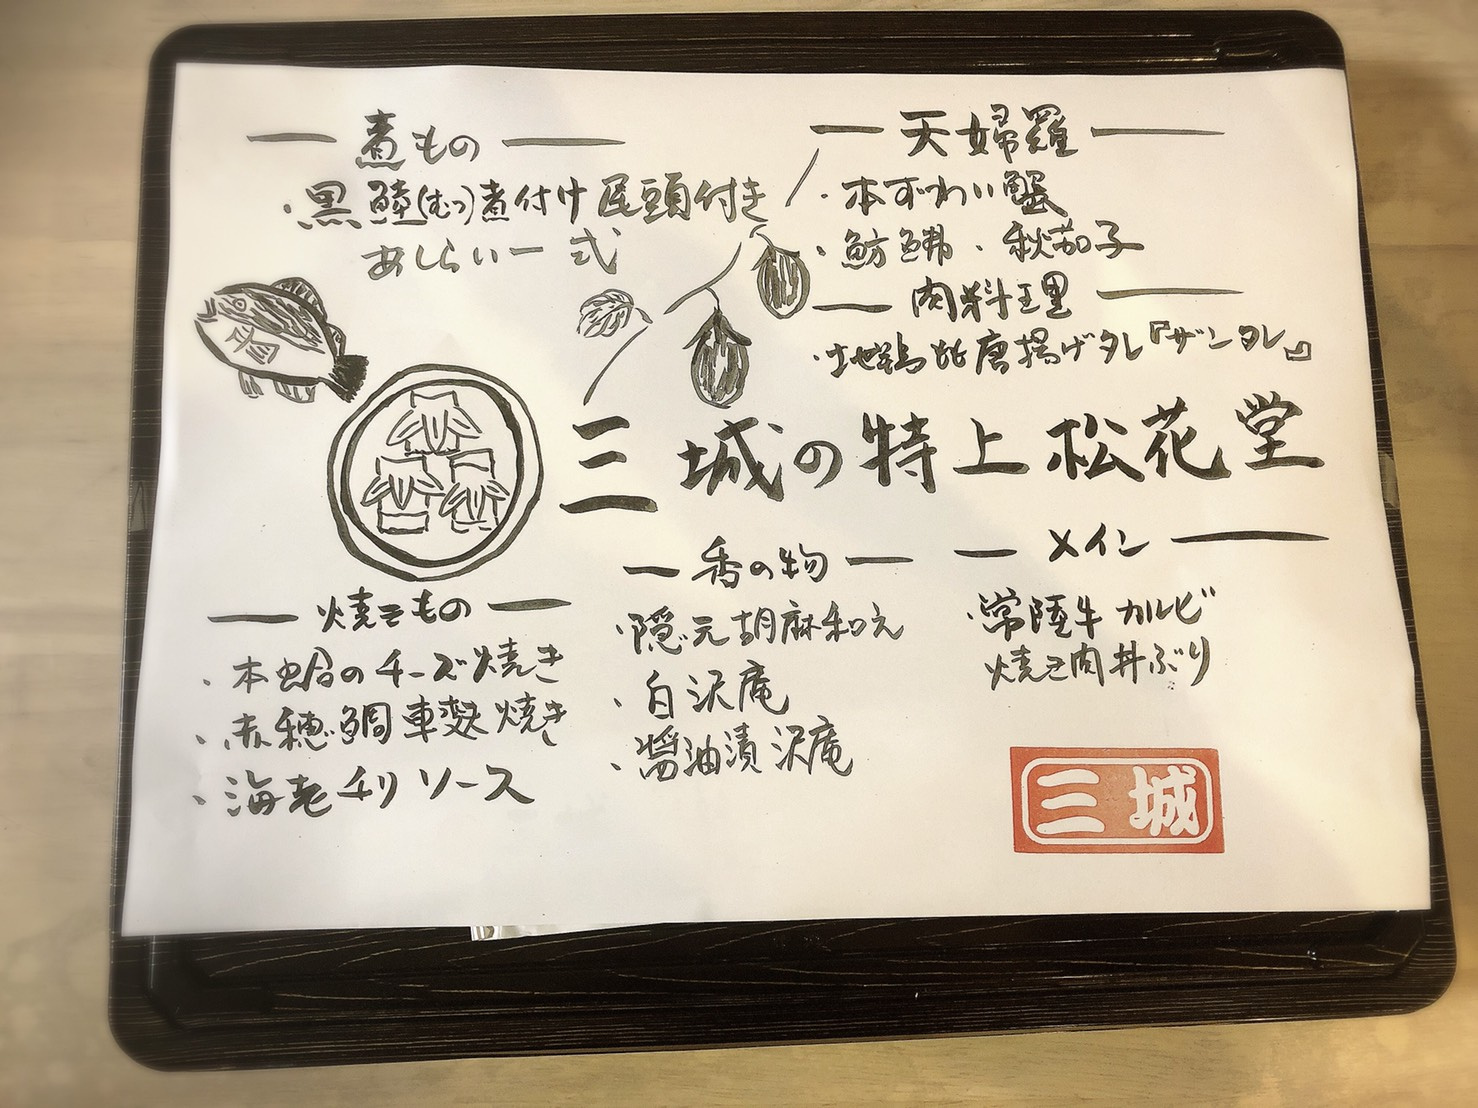 煮もの
・黒鯥(むつ)煮付け尾頭付き
あしらい一式
天婦羅
・本ずわい蟹
・魴鮄・秋茄子
肉料理
・地鶏もも唐揚げタレ『ザンタレ』
三城の特上松花堂
焼きもの
・本蛤のチーズ焼き
・赤穂鯛車麩焼き
・海老チリソース
香の物
・隠元胡麻和え
・白沢庵
・醤油漬沢庵
メイン
・常陸牛カルビ
焼き肉丼ぶり
三城